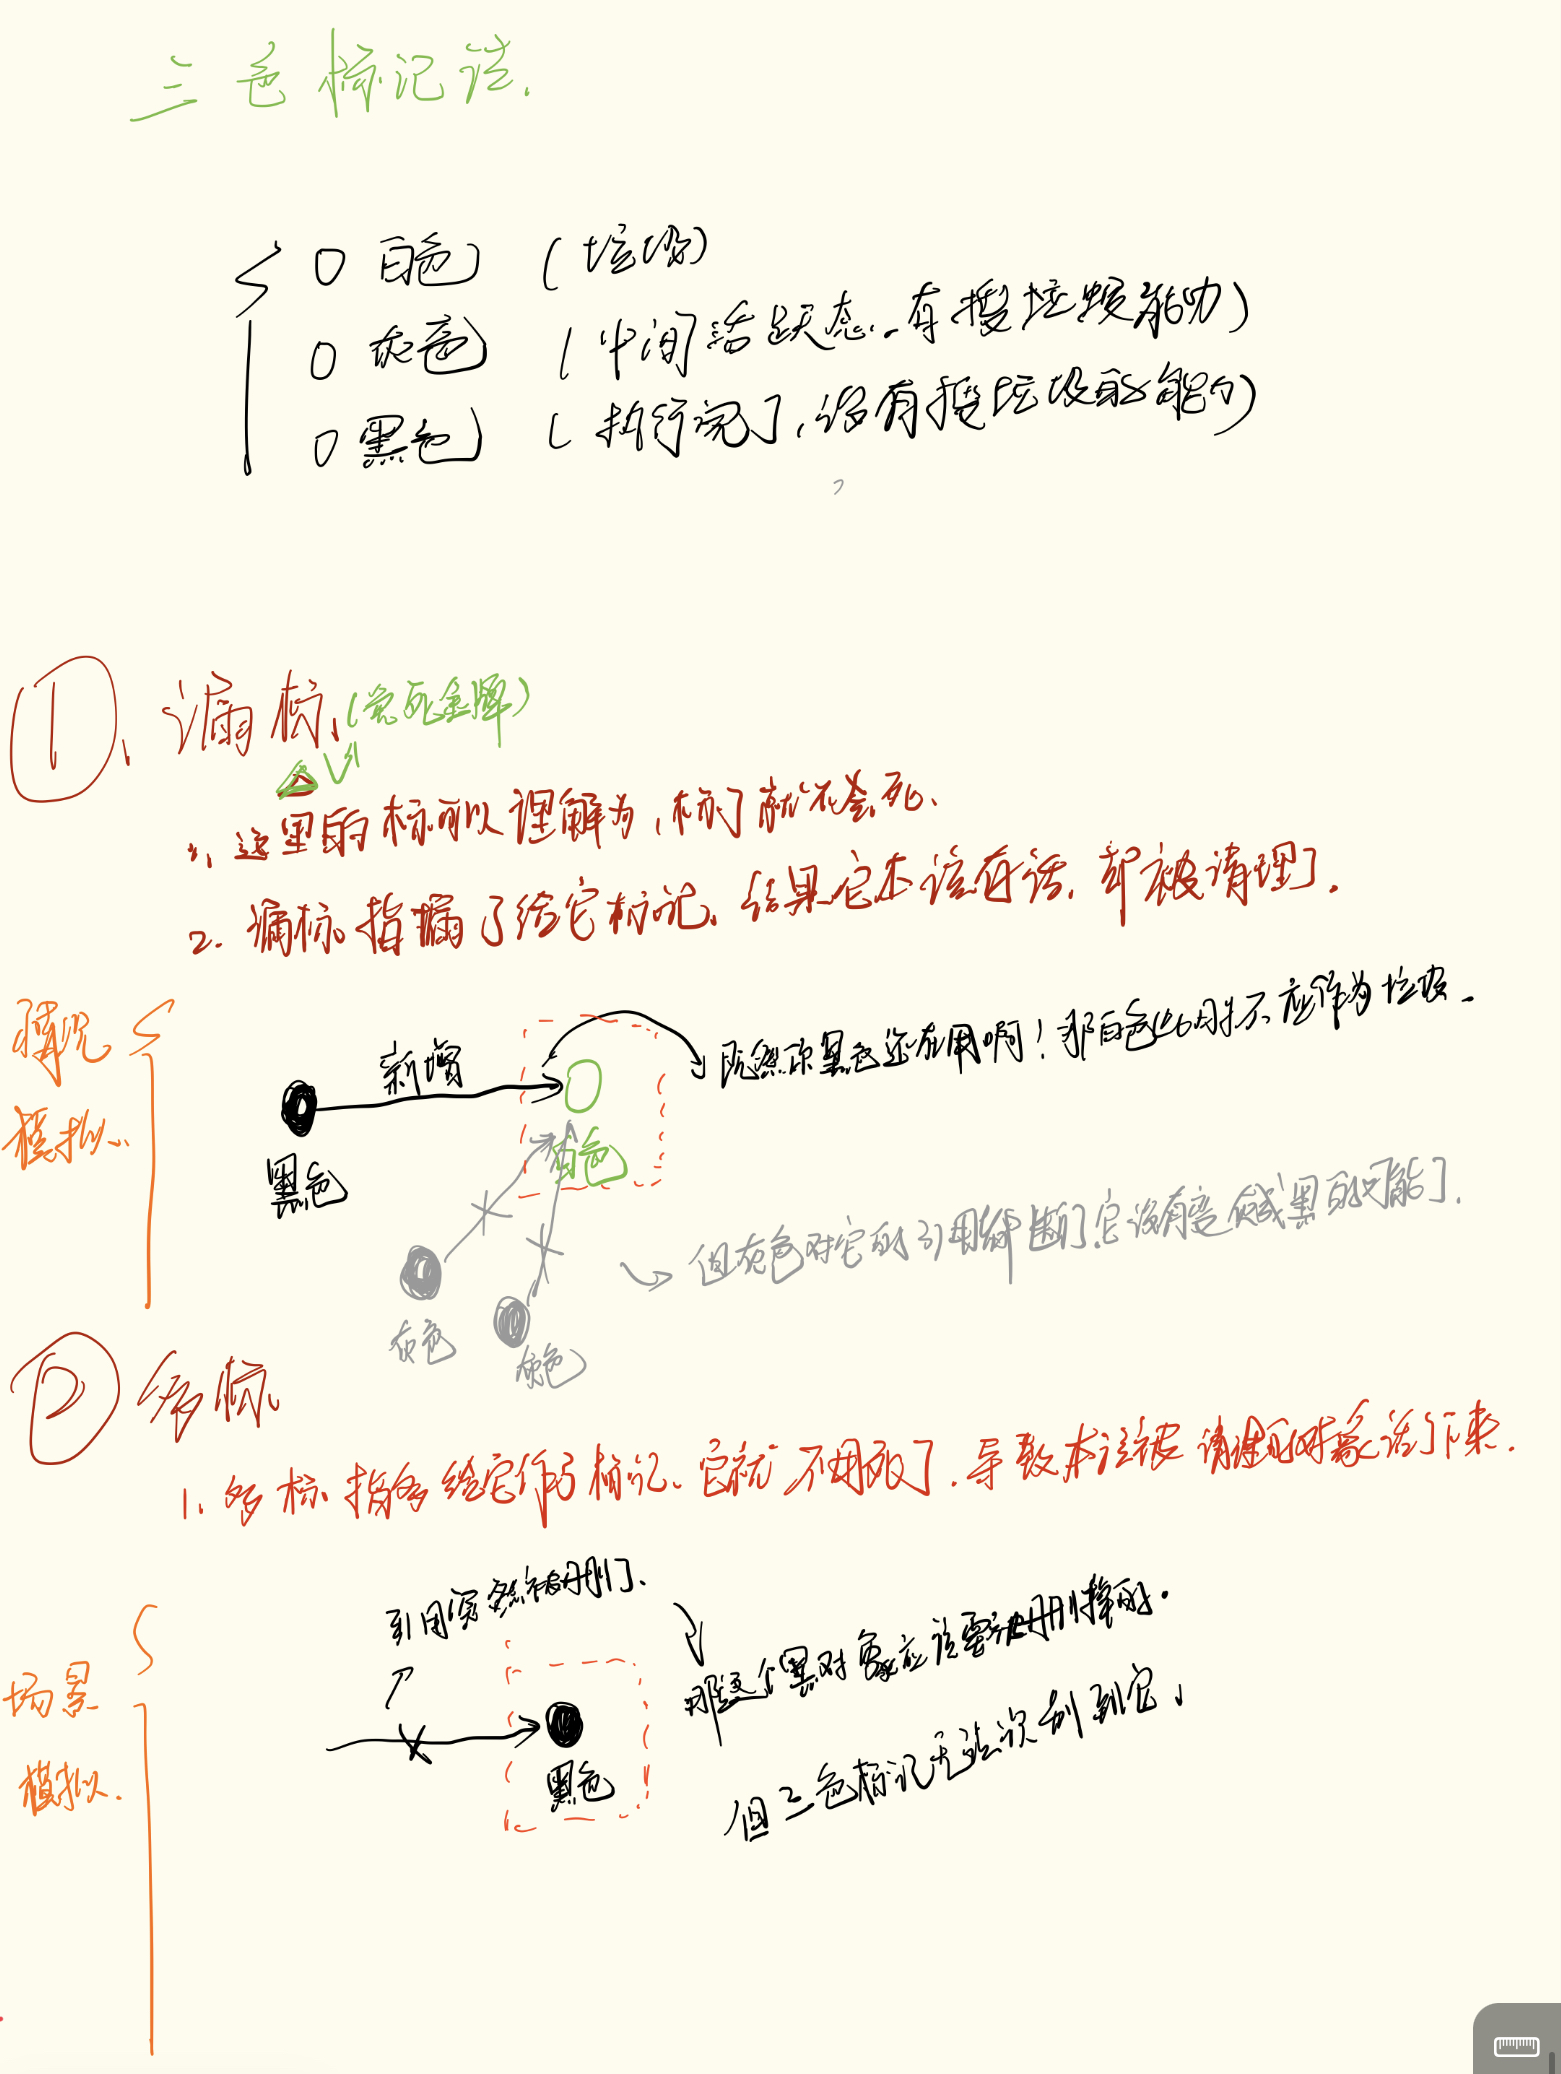 三色标记法.
白色 (垃圾)
灰色 (中间活跃态.. 有搜垃圾能力)
黑色 (执行完了,没有搜垃圾的能力)
①、漏标、(免死金牌)
1、这里的标可以理解为,标了就不会死、
2. 漏标指漏了给它标记、结果它本该存活、却被清理了.
情况
模拟..
新增
黑色
白色
既然黑色还在用啊!那白色不应作为垃圾.
灰色
灰色
但灰色对它的引用都断了.它没有变成黑的可能了.
② 多标
1、多标指多给它作了标记、它就不用死了.导致本该被清理的对象活了下来.
场景
模拟.
引用突然被删了.
黑色
那这个黑对象应该需被删掉的.
但三色标记无法识别到它、